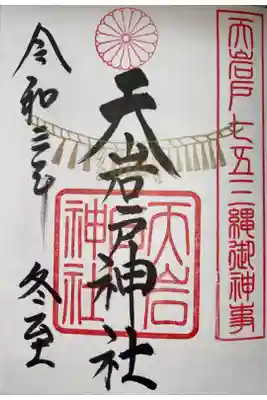 天岩戸七五三縄御神事
天岩戸神社
天岩
神社
令和三年 冬至